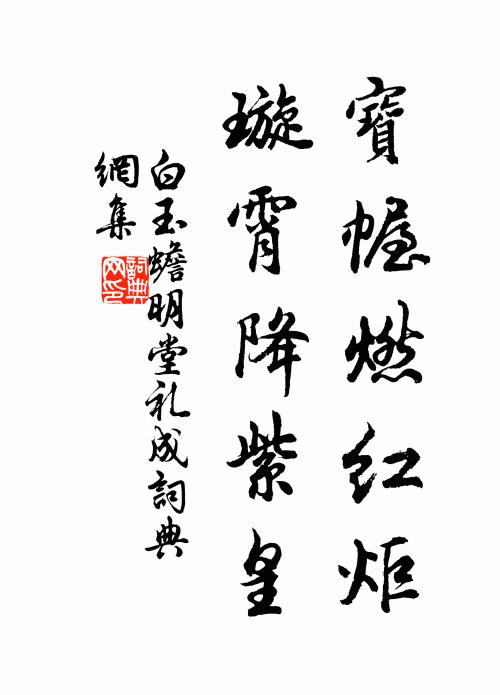 寶幄燃紅炬
璇霄降紫皇
白玉蟾明堂礼成詞典
網集